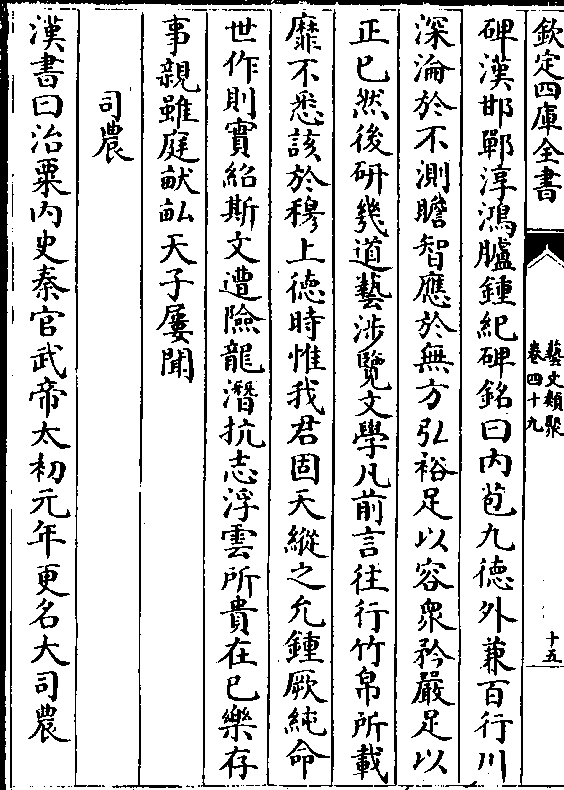 欽定四庫全書
藝文類聚
卷四十九
十五
碑漢邯鄲淳鴻臚鍾紀碑銘曰内苞九德外兼百行川
深淪於不測贍智應於無方弘裕足以容衆矜嚴足以
正已然後研幾道藝涉覽文學凡前言往行竹帛所載
靡不悉該於穆上德時惟我君固天縱之允鍾厥純命
世作則實紹斯文遭險龍潛抗志浮雲所貴在已樂存
事親雖庭猷畆天子屢聞
司農
漢書曰治粟内史秦官武帝太初元年更名大司農